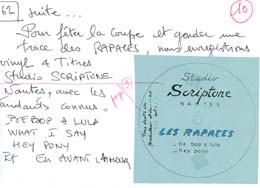 62 suite... 10
Pour fêter la coupe et garder une
trace des RAPACES, nous enregistrons
vinyl 4 Titres
Studio SCRIPTONE
Nantes, avec les
standards connus.
BE BOP A LULA
WHAT I SAY
HEY PONY
Et EN AVANT L'AMOUR
Studio
Scriptone
NANTES
LES RAPACES
be bop a lula
hey pony